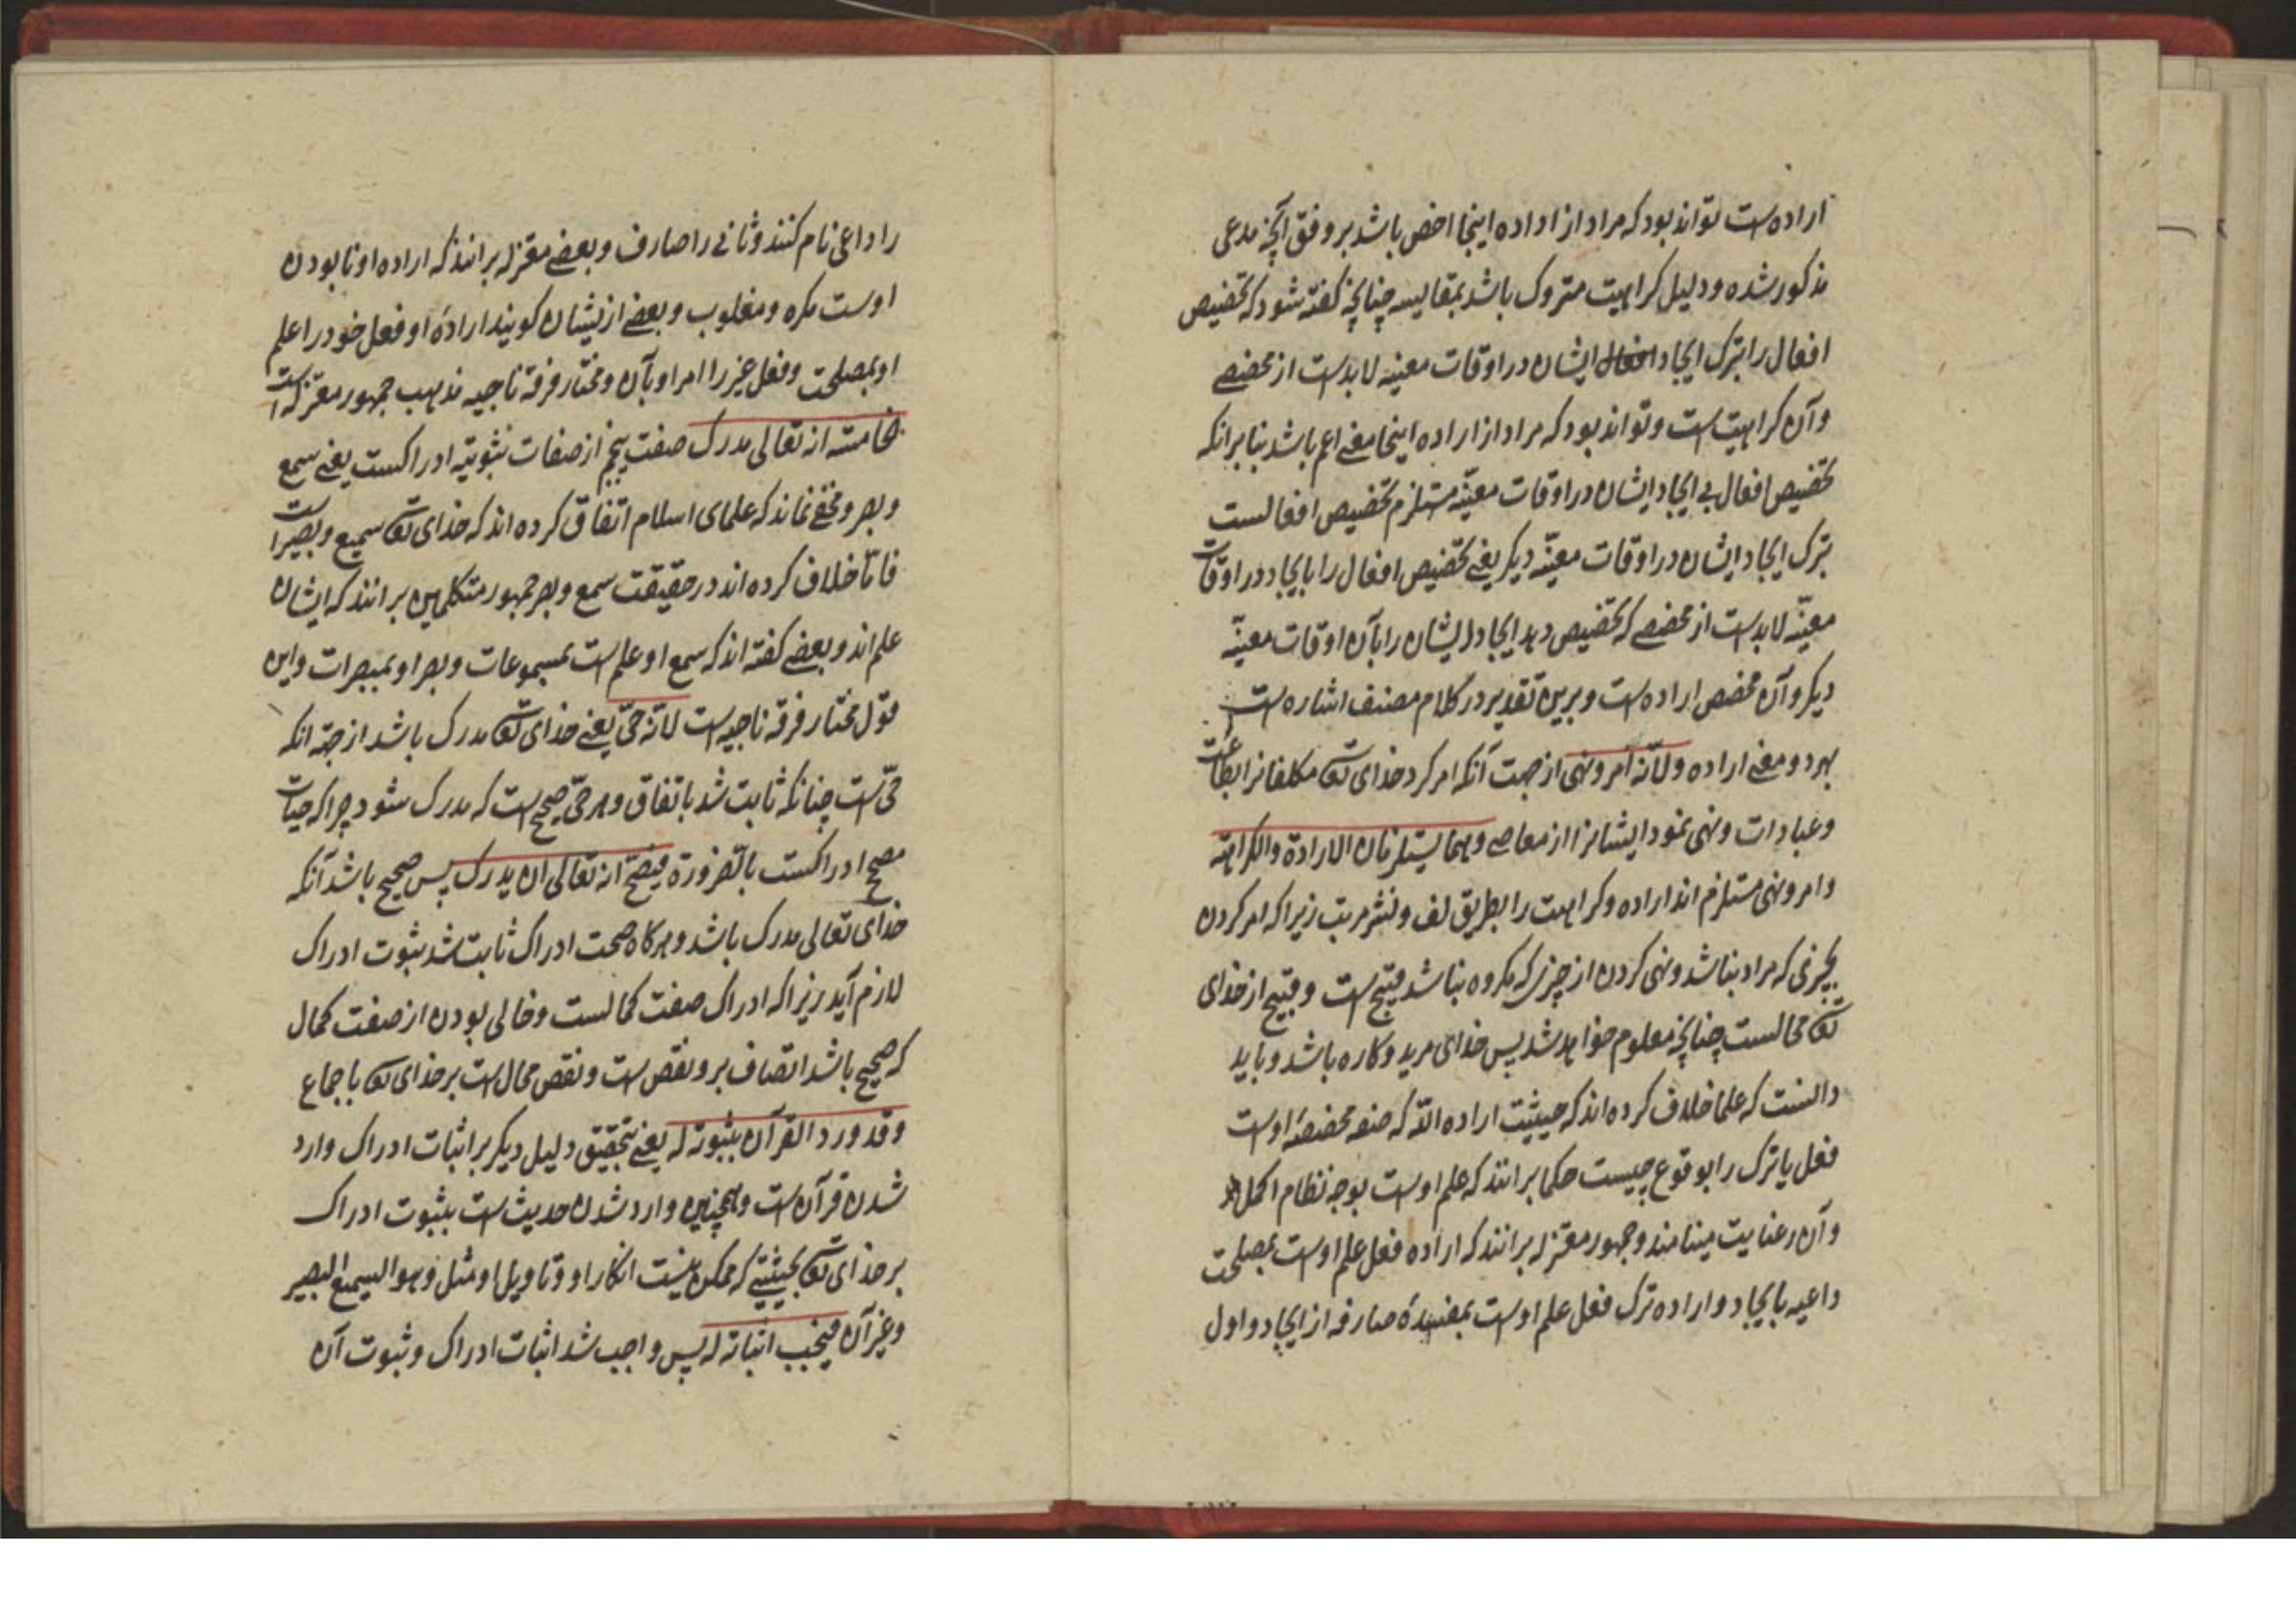 ارادهست تواند بود که مراد از اداده اینجا اخص باشد بر وفق آنچه مدعی
مذکور شده و دلیل کراهیت متروک باشد بمقایسه چنانچه کفته شود که تخصیص
افعال را بترک ایجاد افعال ایشان در اوقات معینه لابدست از مخصصے
وآن کراهیت ست و تواند بود که مراد از اراده اینجا معنے اعم باشد بنابر انکه
تخصیص افعال بی ایجاد ایشان در اوقات معیّنه مستلزم تخصیص افعالست
بترک ایجاد ایشان در اوقات معیّنه دیکر یعنے تخصیص افعال را بایجاد در اوقات
معیّنه لابدست از مخصصے که تخصیص دهد ایجاد ایشان را بآن اوقات معیّنه
دیکر وآن مخصص ارادهست و برین تقدیر در کلام مصنف اشارهست
بهر دو معنے اراده ولانّه امر و نهی از جهت آنکه امر کرد خدای تعا مکلفانرا بطاعت
وعبادات و نهی نمود ایشانرا از معاصے وهما یستلزمان الارادة والکراهة
وامر و نهی مستلزم اند اراده و کراهت را بطریق لف و نشر مرتب زیرا که امر کردن
بچیزی که مراد نباشد و نهی کردن از چیزی که مکروه نباشد قبیح ست و قبیح از خدای
تعا محالست چنانچه معلوم خواهد شد پس خدای مرید و کاره باشد و باید
دانست که علما خلاف کرده اند که حیثیت اراده الله که صفه مخصصهٔ اوست
فعل یا ترک را بوقوع چیست حکما برانند که علم اوست بوجه نظام اکمل
وآن را عنایت مینامند و جمهور معتزله برانند که اراده فعل علم اوست بمصلحت
داعیه بایجاد و اراده ترک فعل علم اوست بمفسدهٔ صارفه از ایجاد و اول
را داعی نام کنند و ثانی را صارف و بعضے معتزله برانند که اراده او نابودن
اوست مکره و مغلوب و بعضے از یشان کویند ارادهٔ او فعل خود را علم
او بمصلحت و فعل غیر را امر او بآن و مختار فرقه ناجیه مذهب جمهور معتزله است
خامسته انه تعالی مدرک صفت پنجم از صفات ثبوتیه ادراکست یعنے سمع
و بصر و مخفے نماند که علمای اسلام اتفاق کرده اند که خدای تعا سمیع و بصیر است
فامّا خلاف کرده اند در حقیقت سمع و بصر جمهور متکلمین برانند که ایشان
علم اند و بعضے کفته اند که سمع او علم ست بمسموعات و بصر او بمبصرات و این
قول مختار فرقه ناجیه ست لانّه حیّ یعنے خدای تعا مدرک باشد از جهة انکه
حیّ ست چنانکه ثابت شد باتفاق و هر حیّ صحیح ست که مدرک شود چرا که حیات
مصحح ادراکست بالضرورة فیصحّ انه تعالی ان یدرک پس صحیح باشد آنکه
خدای تعالی مدرک باشد و هرکاه صحت ادراک ثابت شد ثبوت ادراک
لازم آید زیرا که ادراک صفت کمالست و خالی بودن از صفت کمال
که صحیح باشد اتصاف برو نقص ست و نقص محال ست بر خدای تعا باجماع
وقد ورد القرآن بثبوته له یعنے بتحقیق دلیل دیکر بر اثبات ادراک وارد
شدن قرآن ست و همچنین وارد شدن حدیث ست بثبوت ادراک
بر خدای تعا بحیثیتے که ممکن نیست انکار او و تاویل او مثل وهو السمیع البصیر
وغیر آن فیجب اثباته له پس واجب شد اثبات ادراک و ثبوت آن